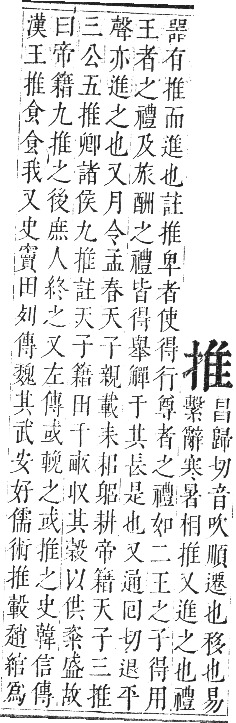 推
昌歸切音吹順遷也移也易
繫辭寒暑相推又進之也禮
器有推而進也註推卑者使得行尊者之禮如二王之子得用
王者之禮及旅酬之禮皆得舉觶于其長是也又通回切退平
聲亦進之也又月令孟春天子親載耒耜躬耕帝籍天子三推
三公五推卿諸侯九推註天子籍田千畝収其穀以供粢盛故
曰帝籍九推之後庶人終之又左傳或輓之或推之史韓信傳
漢王推食食我又史竇田列傳魏其武安好儒術推轂趙綰為